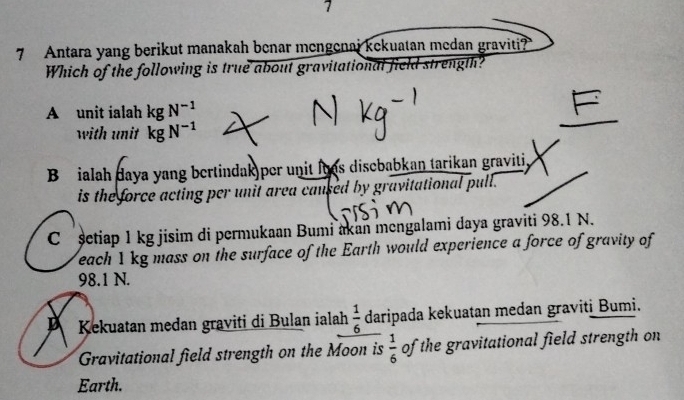 7
7 Antara yang berikut manakah benar mengenai kekuatan medan graviti?
Which of the following is true about gravitational field strength?
A unit ialah kg N⁻¹
with unit kg N⁻¹
N kg⁻¹
F
B ialah daya yang bertindak per unit luas disebabkan tarikan graviti.
is the force acting per unit area caused by gravitational pull.
jisim
C setiap 1 kg jisim di permukaan Bumi akan mengalami daya graviti 98.1 N.
each 1 kg mass on the surface of the Earth would experience a force of gravity of
98.1 N.
D Kekuatan medan graviti di Bulan ialah 1/6 daripada kekuatan medan graviti Bumi.
Gravitational field strength on the Moon is 1/6 of the gravitational field strength on
Earth.